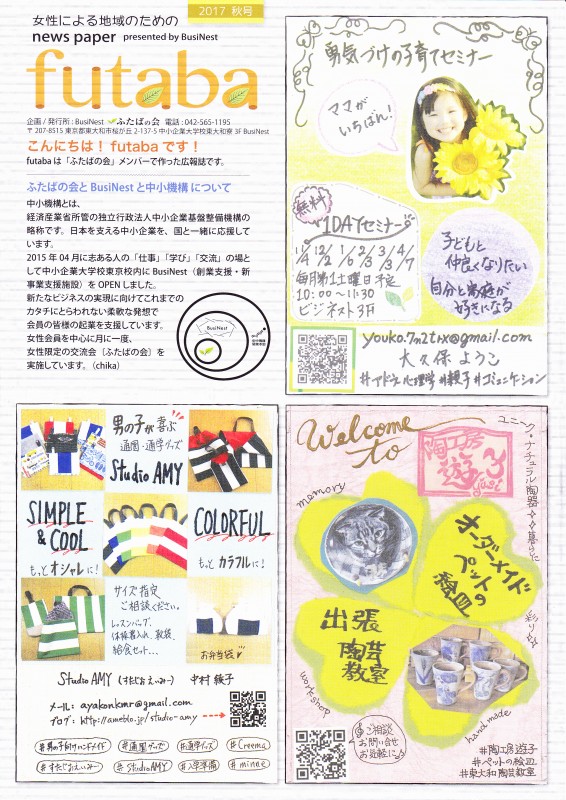 女性による地域のための
2017 秋号
news paper presented by BusiNest
futaba
企画 / 発行所 : BusiNest ふたばの会 電話 : 042-565-1195
〒207-8515 東京都東大和市桜が丘 2-137-5 中小企業大学校東大和寮 3F BusiNest
こんにちは！ futaba です！
futaba は「ふたばの会」メンバーで作った広報誌です。
ふたばの会と BusiNest と中小機構 について
中小機構とは、
経済産業省所管の独立行政法人中小企業基盤整備機構の
略称です。日本を支える中小企業を、国と一緒に応援して
います。
2015 年 04 月に志ある人の「仕事」「学び」「交流」の場と
して中小企業大学校東京校内に BusiNest（創業支援・新
事業支援施設）を OPEN しました。
新たなビジネスの実現に向けてこれまでの
カタチにとらわれない柔軟な発想で
会員の皆様の起業を支援しています。
女性会員を中心に月に一度、
女性限定の交流会〔ふたばの会〕を
実施しています。（chika）
BusiNest
勇気づけの子育てセミナー
ママが
いちばん！
無料
1DAYセミナー
11/4 12/2 1/6 2/3 3/3 4/7
毎月第1土曜日予定
10:00〜11:30
ビジネスト3F
子どもと
仲良くなりたい
自分と家庭が
好きになる
youko.7n2trx@gmail.com
大久保 ようこ
#アドラー心理学 #親子 #コミュニケーション
男の子が喜ぶ
通園・通学グッズ
Studio AMY
SIMPLE
& COOL
もっとオシャレに！
COLORFUL
もっとカラフルに！
サイズ指定
ご相談ください。
レッスンバッグ、
体操着入れ、靴袋、
給食セット…
お弁当袋
Studio AMY (すたじおえいみー) 中村 綾子
メール： ayakonkmr@gmail.com
ブログ： http://ameblo.jp/studio-amy
#男の子向けハンドメイド #通園グッズ #通学グッズ #Creema
#すたじおえいみー #StudioAMY #入学準備 #minne
Welcome
to
陶工房
遊子
yuzi
ユニーク・ナチュラル陶器☆☆暮らしに
彩り☆☆
memory
オーダーメイド
ペットの
絵皿
出張
陶芸
教室
workshop
hand made
ご相談
お問い合せ
お気軽に
#陶工房遊子
#ペットの絵皿
#東大和陶芸教室